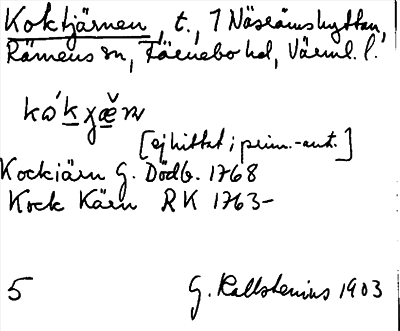 Koktjärnen, t., 7 Näsrämshyttan,
Rämens sn, Färnebo hd, Värml. l.
[ej hittat i prim.-ant.]
Kockiärn G. Dödb. 1768
Kock Kärn RK 1763-
5 G. Kallstenius 1903